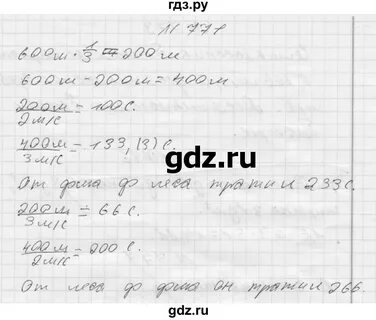 гдз.ру
N 771
600м · 1/3 = 200м
600м - 200м = 400м
200м / 2м/с = 100с.
400м / 3м/с = 133,(3) с.
От дома до леса тратил 233с.
gdz.ru
200м / 3м/с = 66 с.
400м / 2м/с = 200 с.
От леса до дома он тратил 266.
gdz.ru